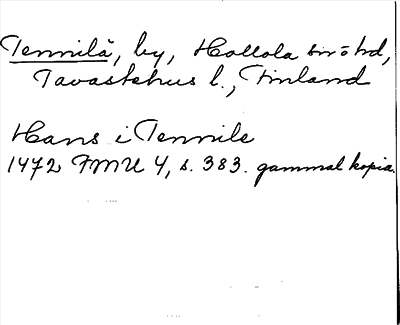 Tennilä, by, Hollola sn o hd,
Tavastehus l., Finland
Hans i Tennile
1472 FMU 4, s. 383. gammal kopia.